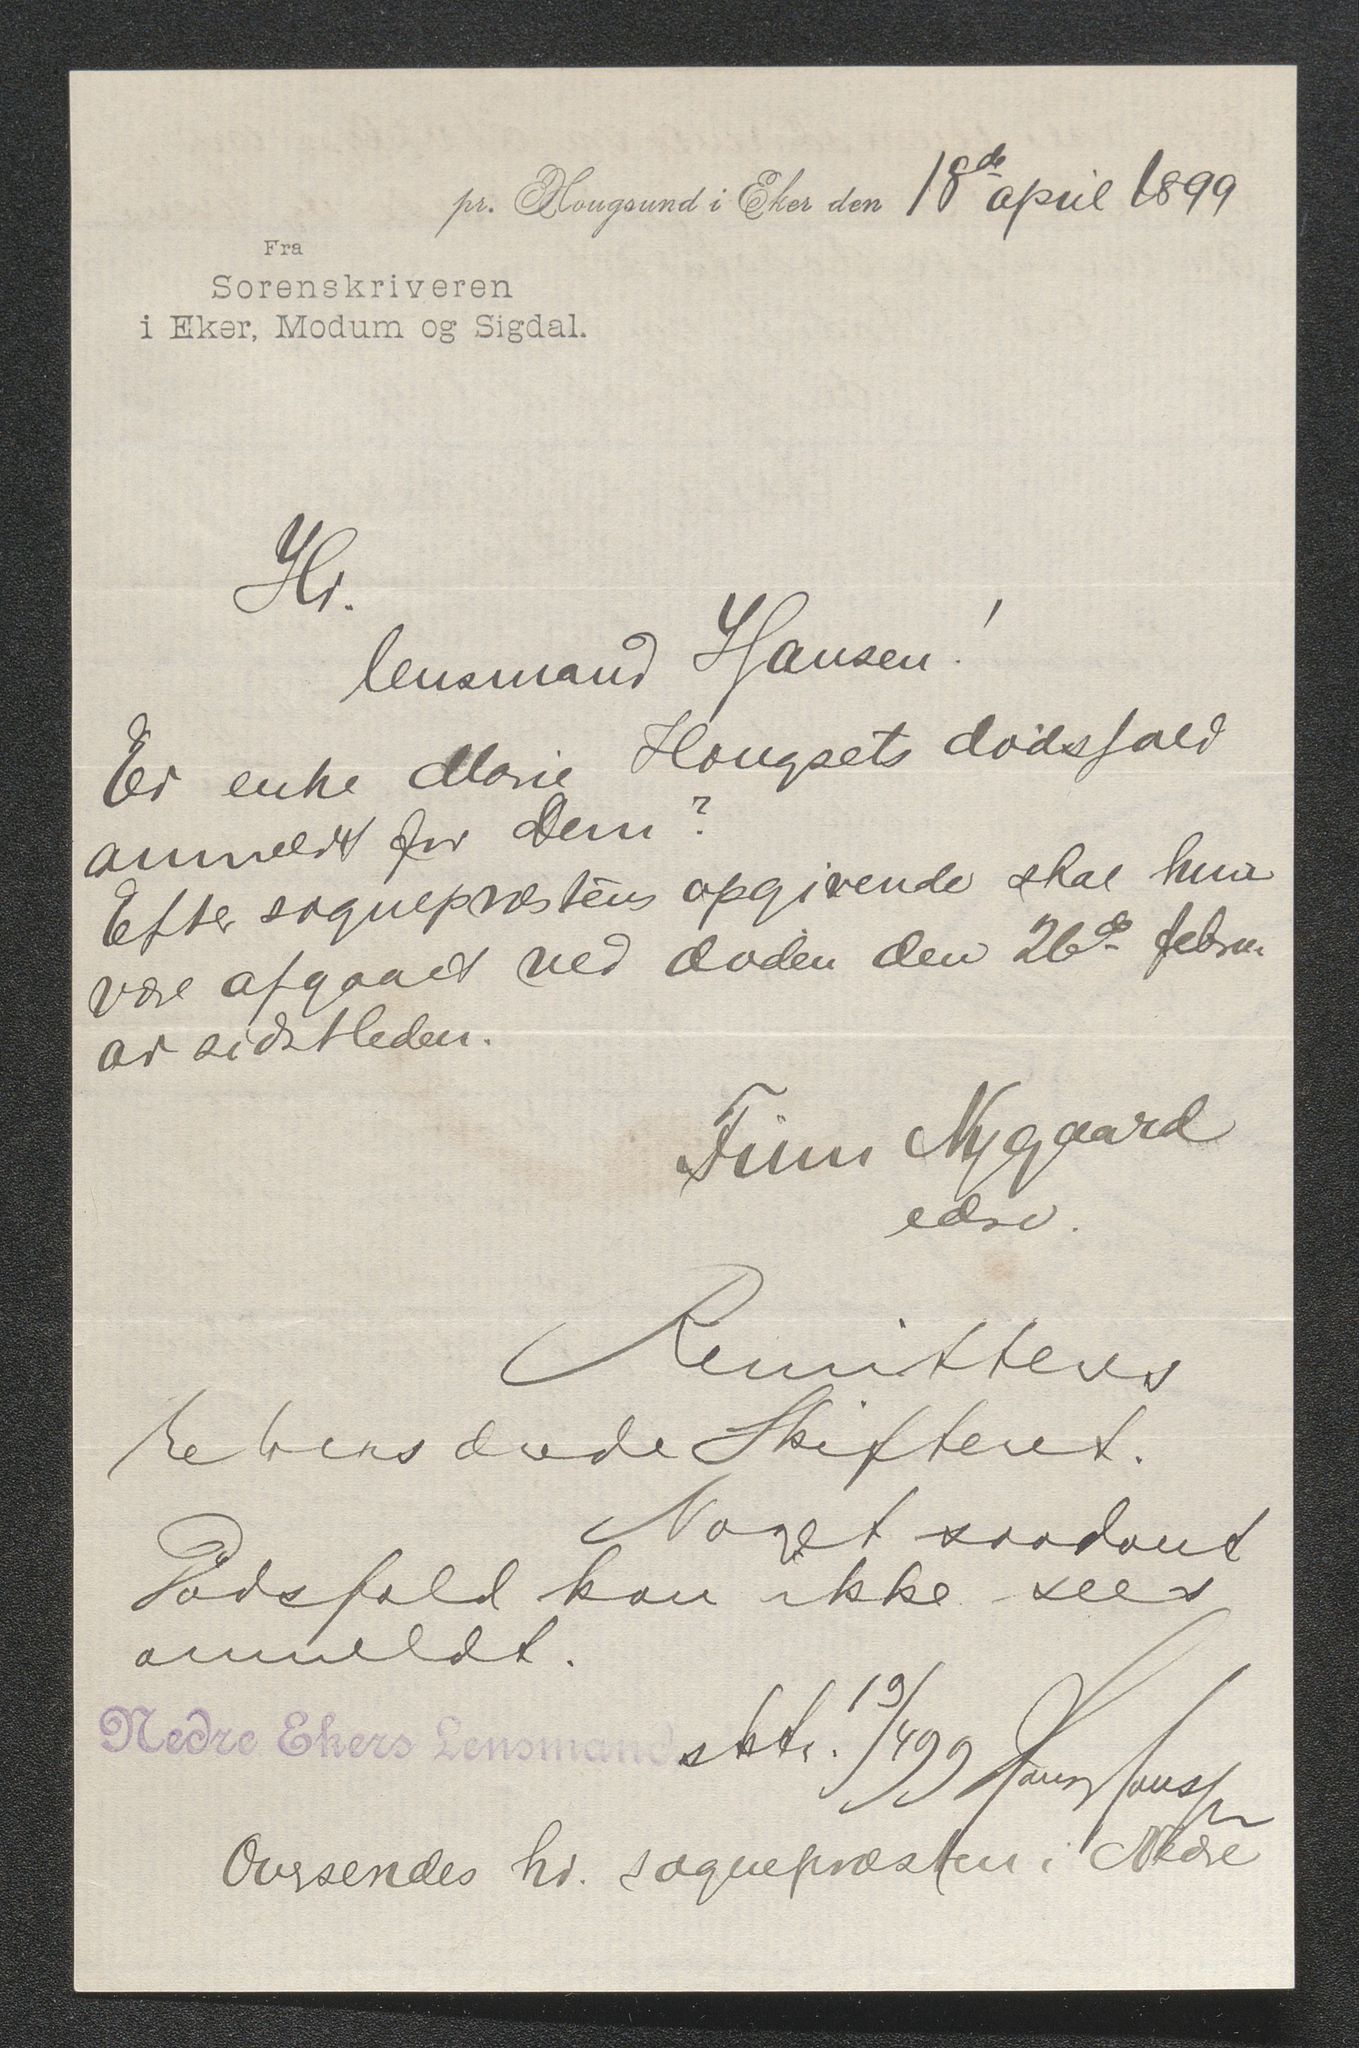 pr. Hougsund i Eker den 18de april 1899
Fra
Sorenskriveren
i Eker, Modum og Sigdal.
Hr.
lensmand Hansen!
Er enke Marie Hougsets dødsfald
anmeldt for Dem?
Efter sogneprestens opgivende skal hun
være afgaaet ved døden den 26de febru-
ar sidstleden.
Finn Nygaard
edsv.
Remitteres
Skifteret.
Noget saadant
Dødsfald kan ikke sees
anmeldt.
Nedre Ekers Lensmand sktr. 19/4 99 Hans Hansen
Oversendes hr. sognepræsten i Nedre